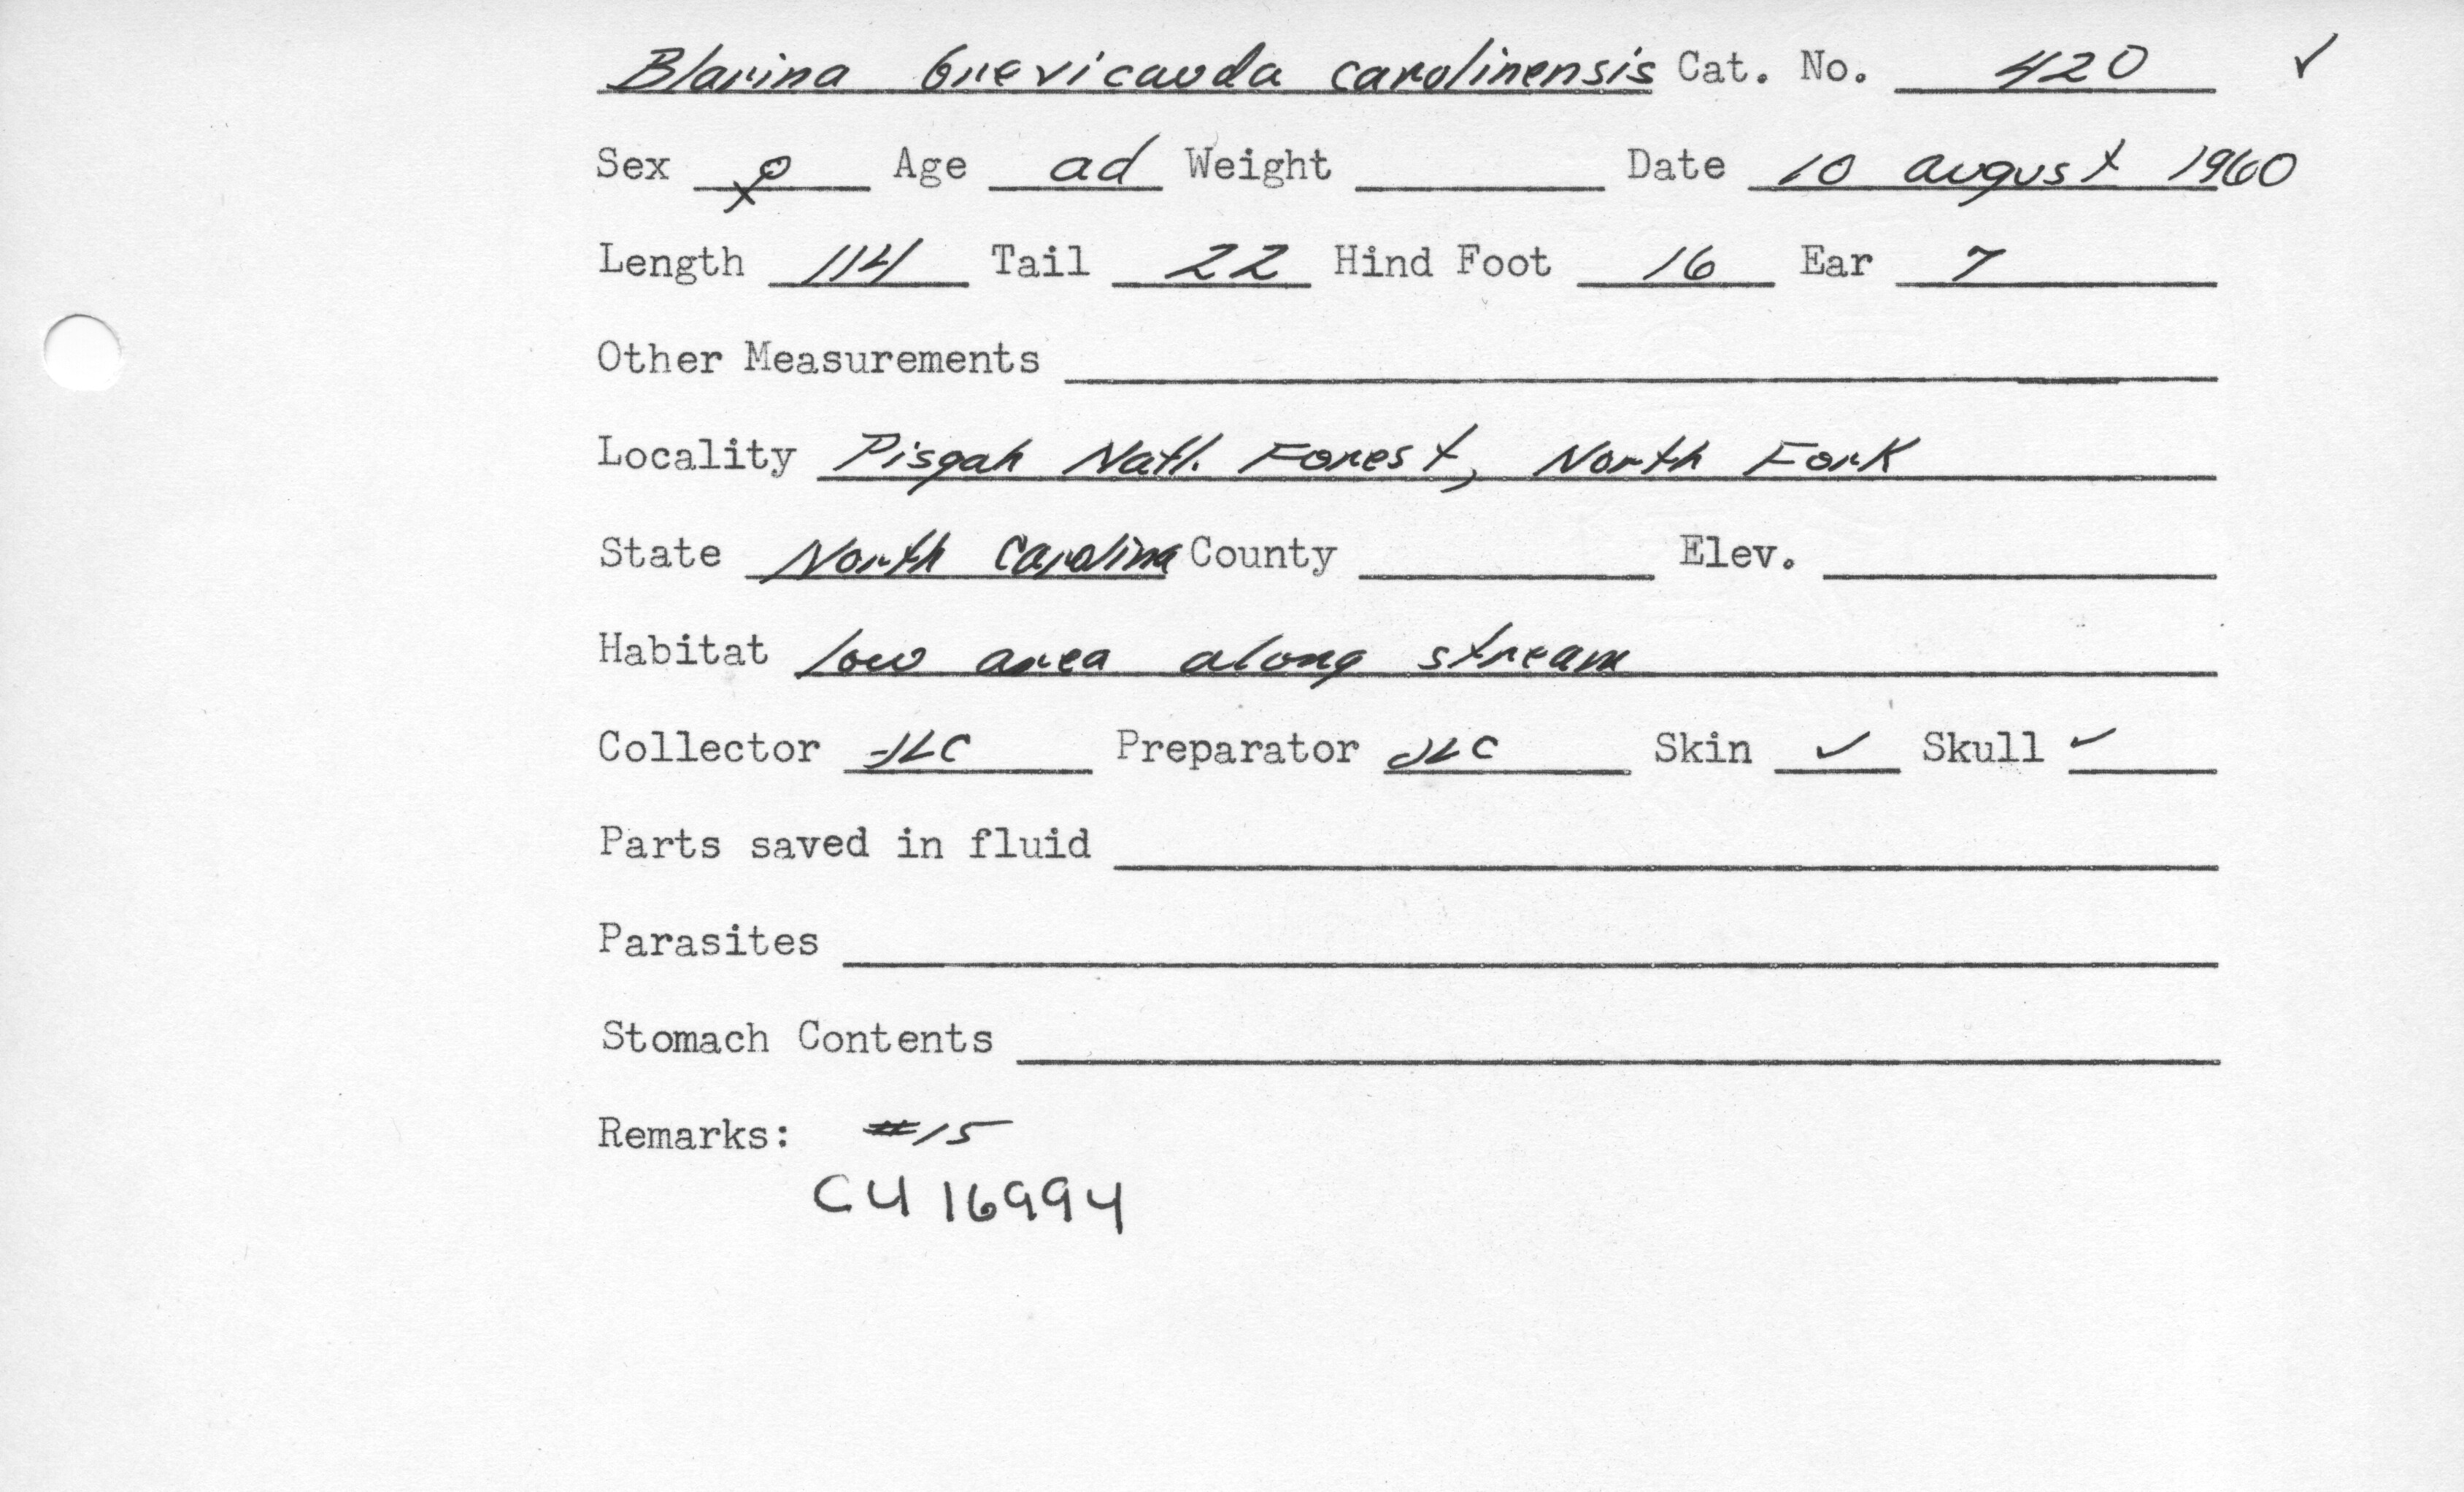 Blarina brevicauda carolinensis Cat. No. 420 ✓
Sex ♀ Age ad Weight Date 10 august 1960
Length 114 Tail 22 Hind Foot 16 Ear 7
Other Measurements
Locality Pisgah Natl. Forest, North Fork
State North Carolina County Elev.
Habitat low area along stream
Collector JLC Preparator JLC Skin ✓ Skull ✓
Parts saved in fluid
Parasites
Stomach Contents
Remarks: #15
CU 16994